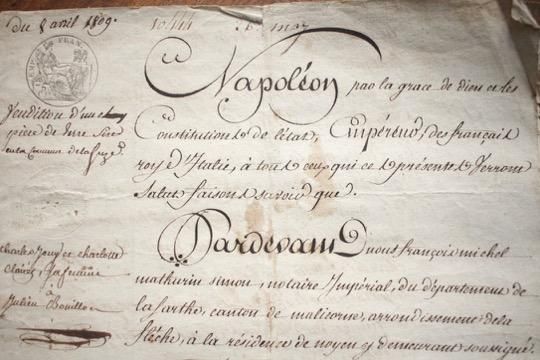 du 8 avril 1809.
Napoléon par la grace de dieu et les
Constitutions de l'état, Empéreur des français
roy d'Italie, à tous ceux qui ces présentes verront
Salut faisons savoir que.
Vendition d'une
pièce de terre
Pardevant nous françois michel
mathurin simon, notaire Impérial, du département de
la sarthe, canton de malicorne, arrondissement de la
flèche, à la résidence de noyen y demeurant soussigné
Charles Jouy et charlotte
sa femme
à
Julien Bouillon